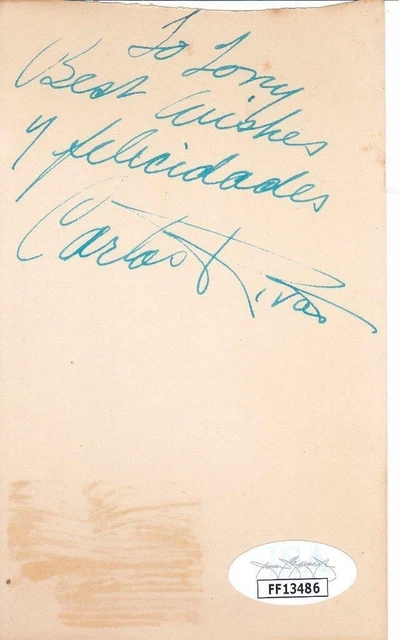 To Tony
Best Wishes
y felicidades
Carlos Rivas
FF13486